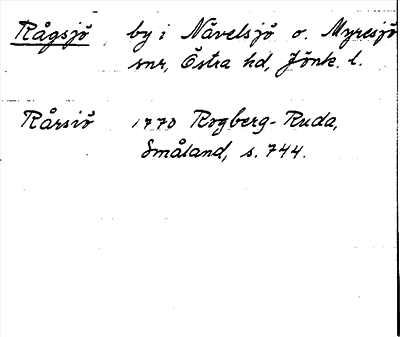 Rågsjö by i Nävelsjö o. Myresjö
snr, Östra hd, Jönk. l.
Rårsiö 1770 Rogberg-Ruda,
Småland, s. 744.